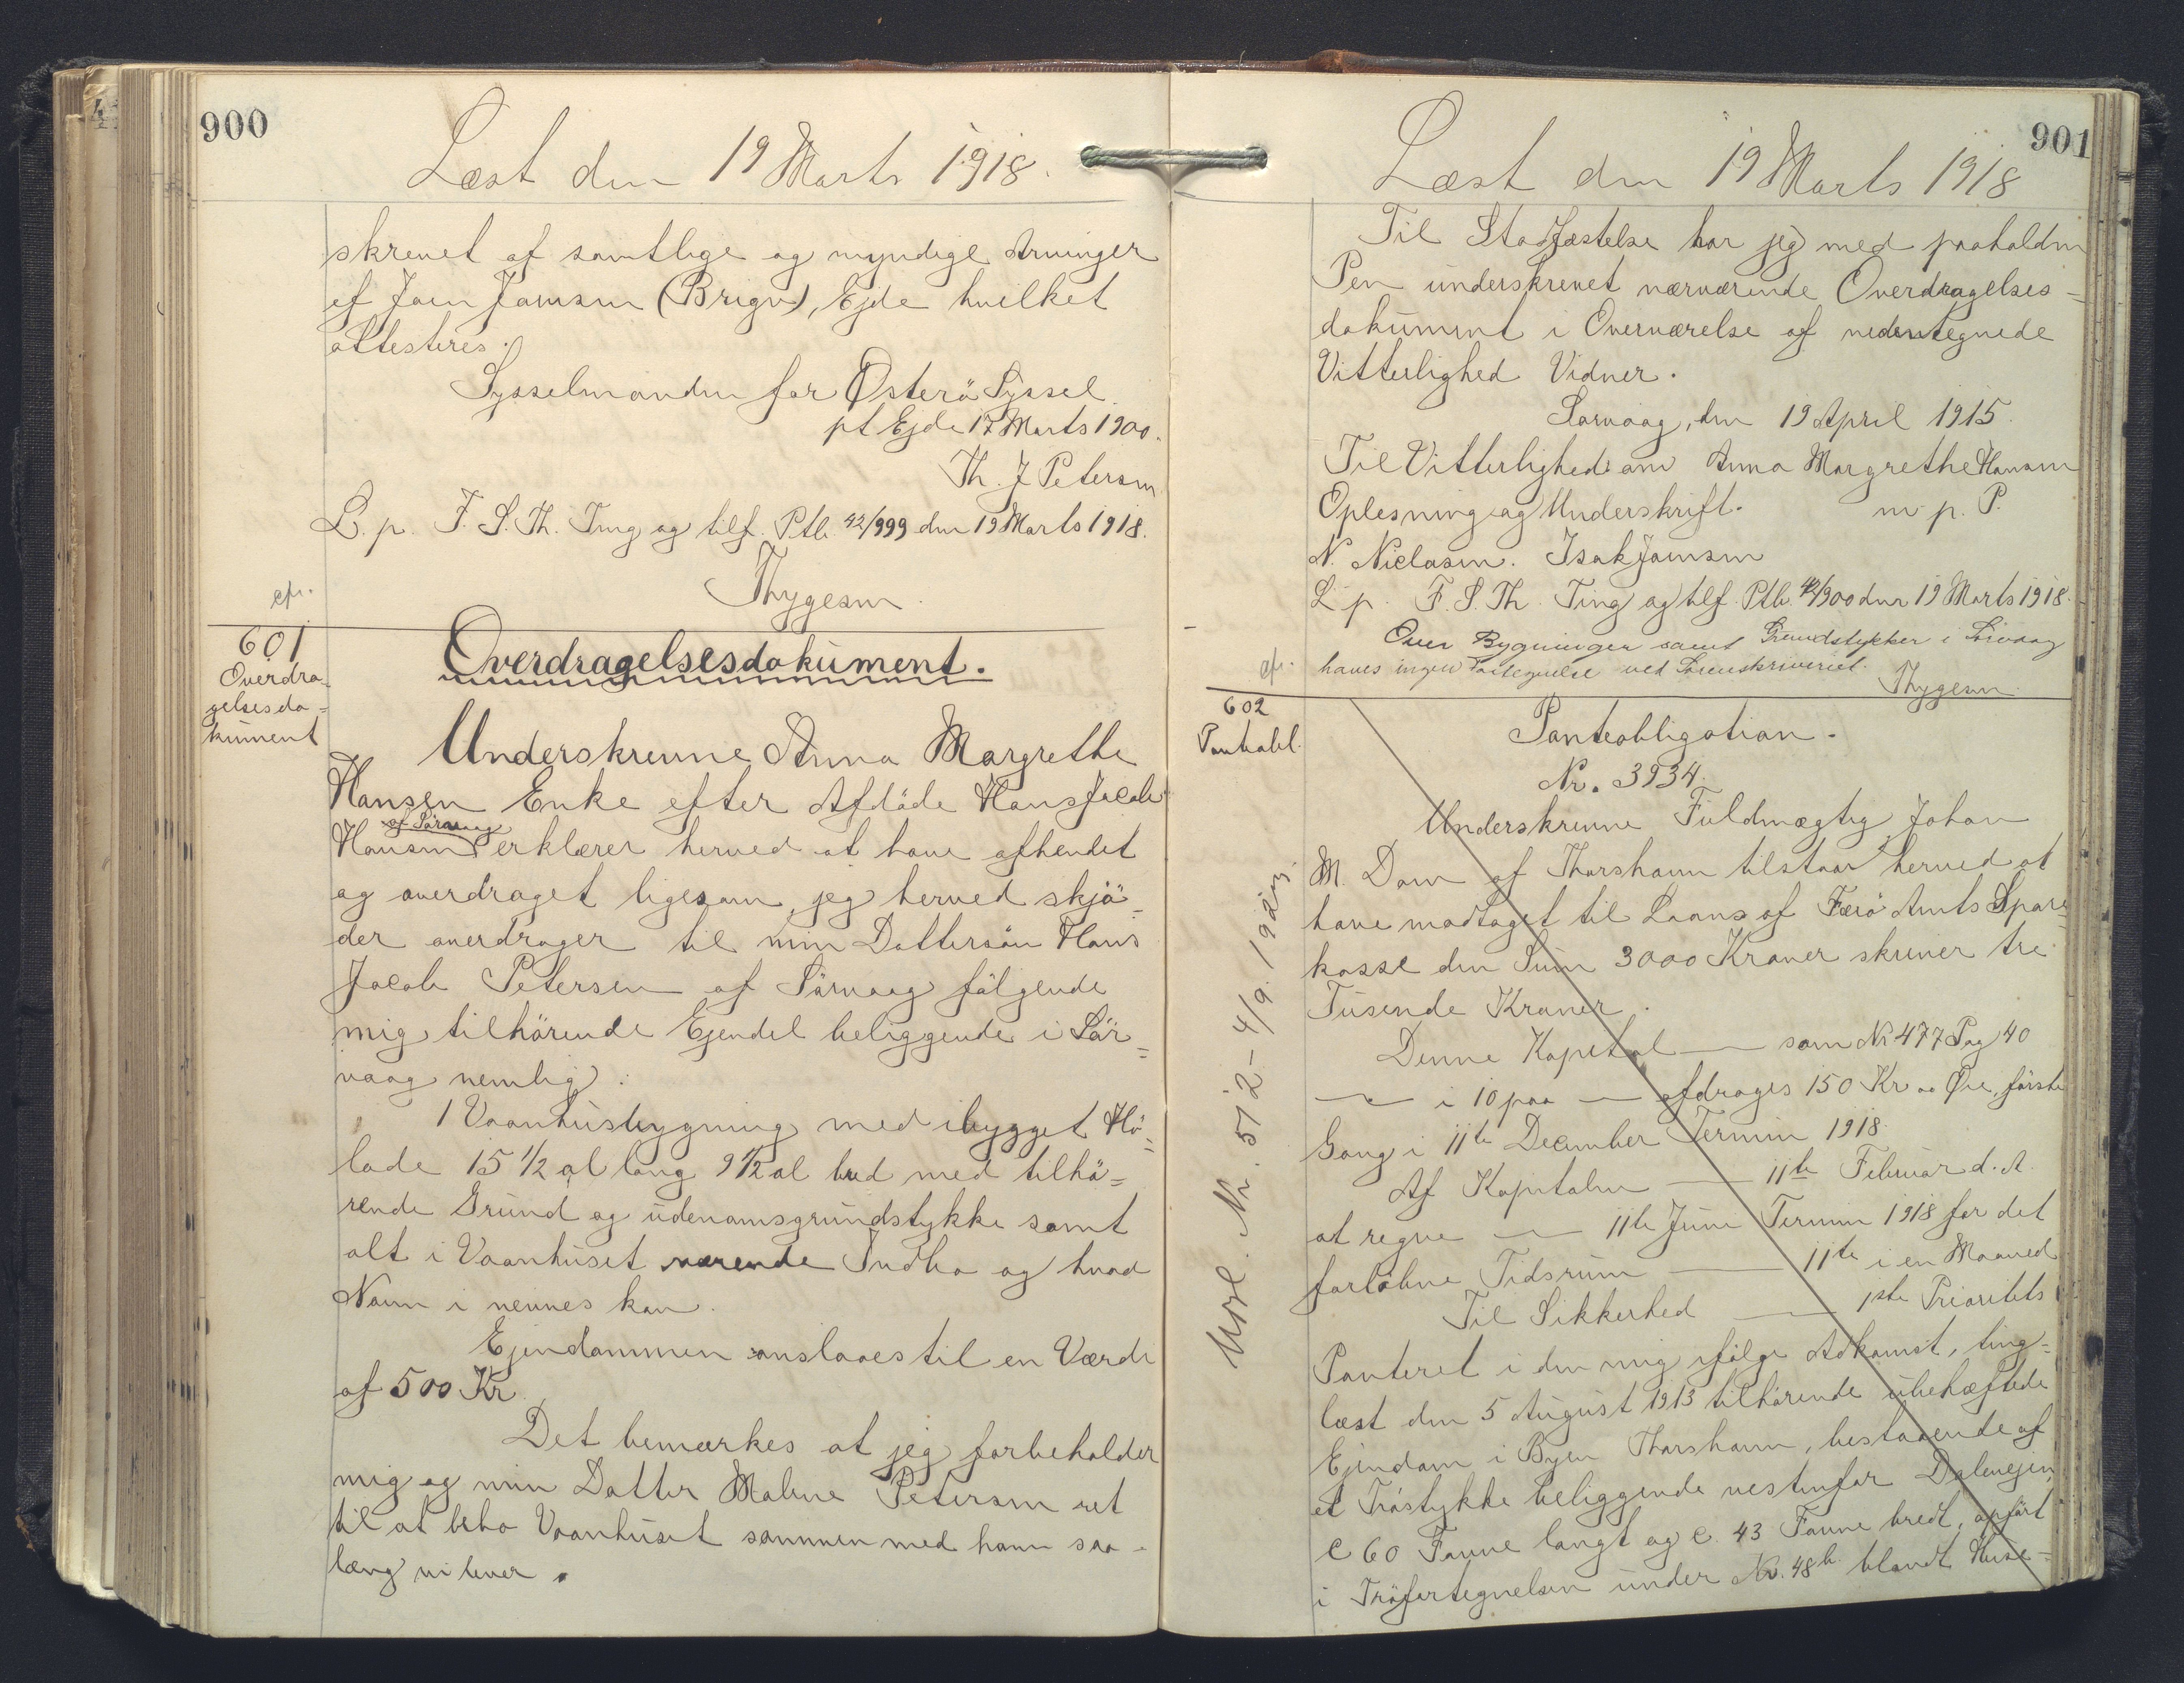 900
Læst den 19 Marts 1918.
skrevet af samtlige og myndige Arvinger
af Joen Joensen (Brign), Ejde hvilket
attesteres.
Sysselmanden for Østerö Syssel
pt Ejde 17 Marts 1900.
Th. J Petersen
L. p. F. S. Th. Ting og tilf. Ptb. 42/999 den 19 Marts 1918.
Thygesen
cfr.
601
Overdra-
gelsesdo=
kument
Overdragelsesdokument.
Underskrevne Anna Margrethe
Hansen Enke efter Afdöde Hans Jacob
af Sörvaag
Hansen erklærer herved at have afhendet
og overdraget ligesom jeg herved skjö-
der overdrager til min Dattersön Hans
Jacob Petersen af Sörvaag fölgende
mig tilhörende Ejendel beliggende i Sör=
vaag nemlig:
1 Vaanhusbygning med ibygget Hö=
lade 15 1/2 al lang 9 1/2 al bred med tilhö=
rende Grund og udenomsgrundstykke samt
alt i Vaanhuset værende Indbo og hvad
Navn i nevnes kan.
Ejendommen anslaaes til en Værdi
af 500 Kr.
Det bemærkes at jeg forbeholder
mig og min Datter Malene Petersen ret
til at bebo Vaanhuset sammen med ham saa-
læng vi lever.
901
Læst den 19 Marts 1918
Til Stadfæstelse har jeg med paaholden
Pen underskrevet nærværende Overdragelses=
dokument i Overværelse af nedentegnede
Vitterlighed Vidner.
Sørvaag, den 19 April 1915.
Til Vitterlighed om Anna Margrethe Hansen
Oplesning og Underskrift. m. p. P.
N. Niclasen. Isak Joensen
L. p. F. S. Th. Ting og tilf. Ptb. 42/900 den 19 Marts 1918.
Over Bygninger samt Grundstykker i Sörvaag
haves ingen Fortegnelse ved Sorenskriveriet.
Thygesen
cfr.
602
Pantobl.
Panteobligation.
Nr. 3934.
Underskrevne Fuldmægtig Johan
M. Dam af Thorshavn tilstaar herved at
have modtaget til Laans af Færö Amts Spare
kasse den Sum 3000 Kroner skriver tre
Tusende Kroner.
Denne Kapital — som Nr 477 Pag 40
— i 10 paa — afdrages 150 Kr 00 Øre, förste
Gang i 11te December Termin 1918.
Af Kapitalen — 11te Februar d. A.
at regne — 11te Juni Termin 1918 for det
forløbne Tidsrum — 11te i en Maaned
Til Sikkerhed — 1ste Prioritets
Panteret i den mig ifölge Adkomst, ting=
læst den 5 August 1913 tilhörende ubehæftede
Ejendom i Byen Thorshavn, bestaaende af
et Tröstykke beliggende vestenfor Dalevejen
c 60 Favne langt og c. 43 Favne bredt, opfört
i Tröfortegnelsen under Nr. 48b. blandt Huse-
Udsl. Nr. 512 - 4/9. 19